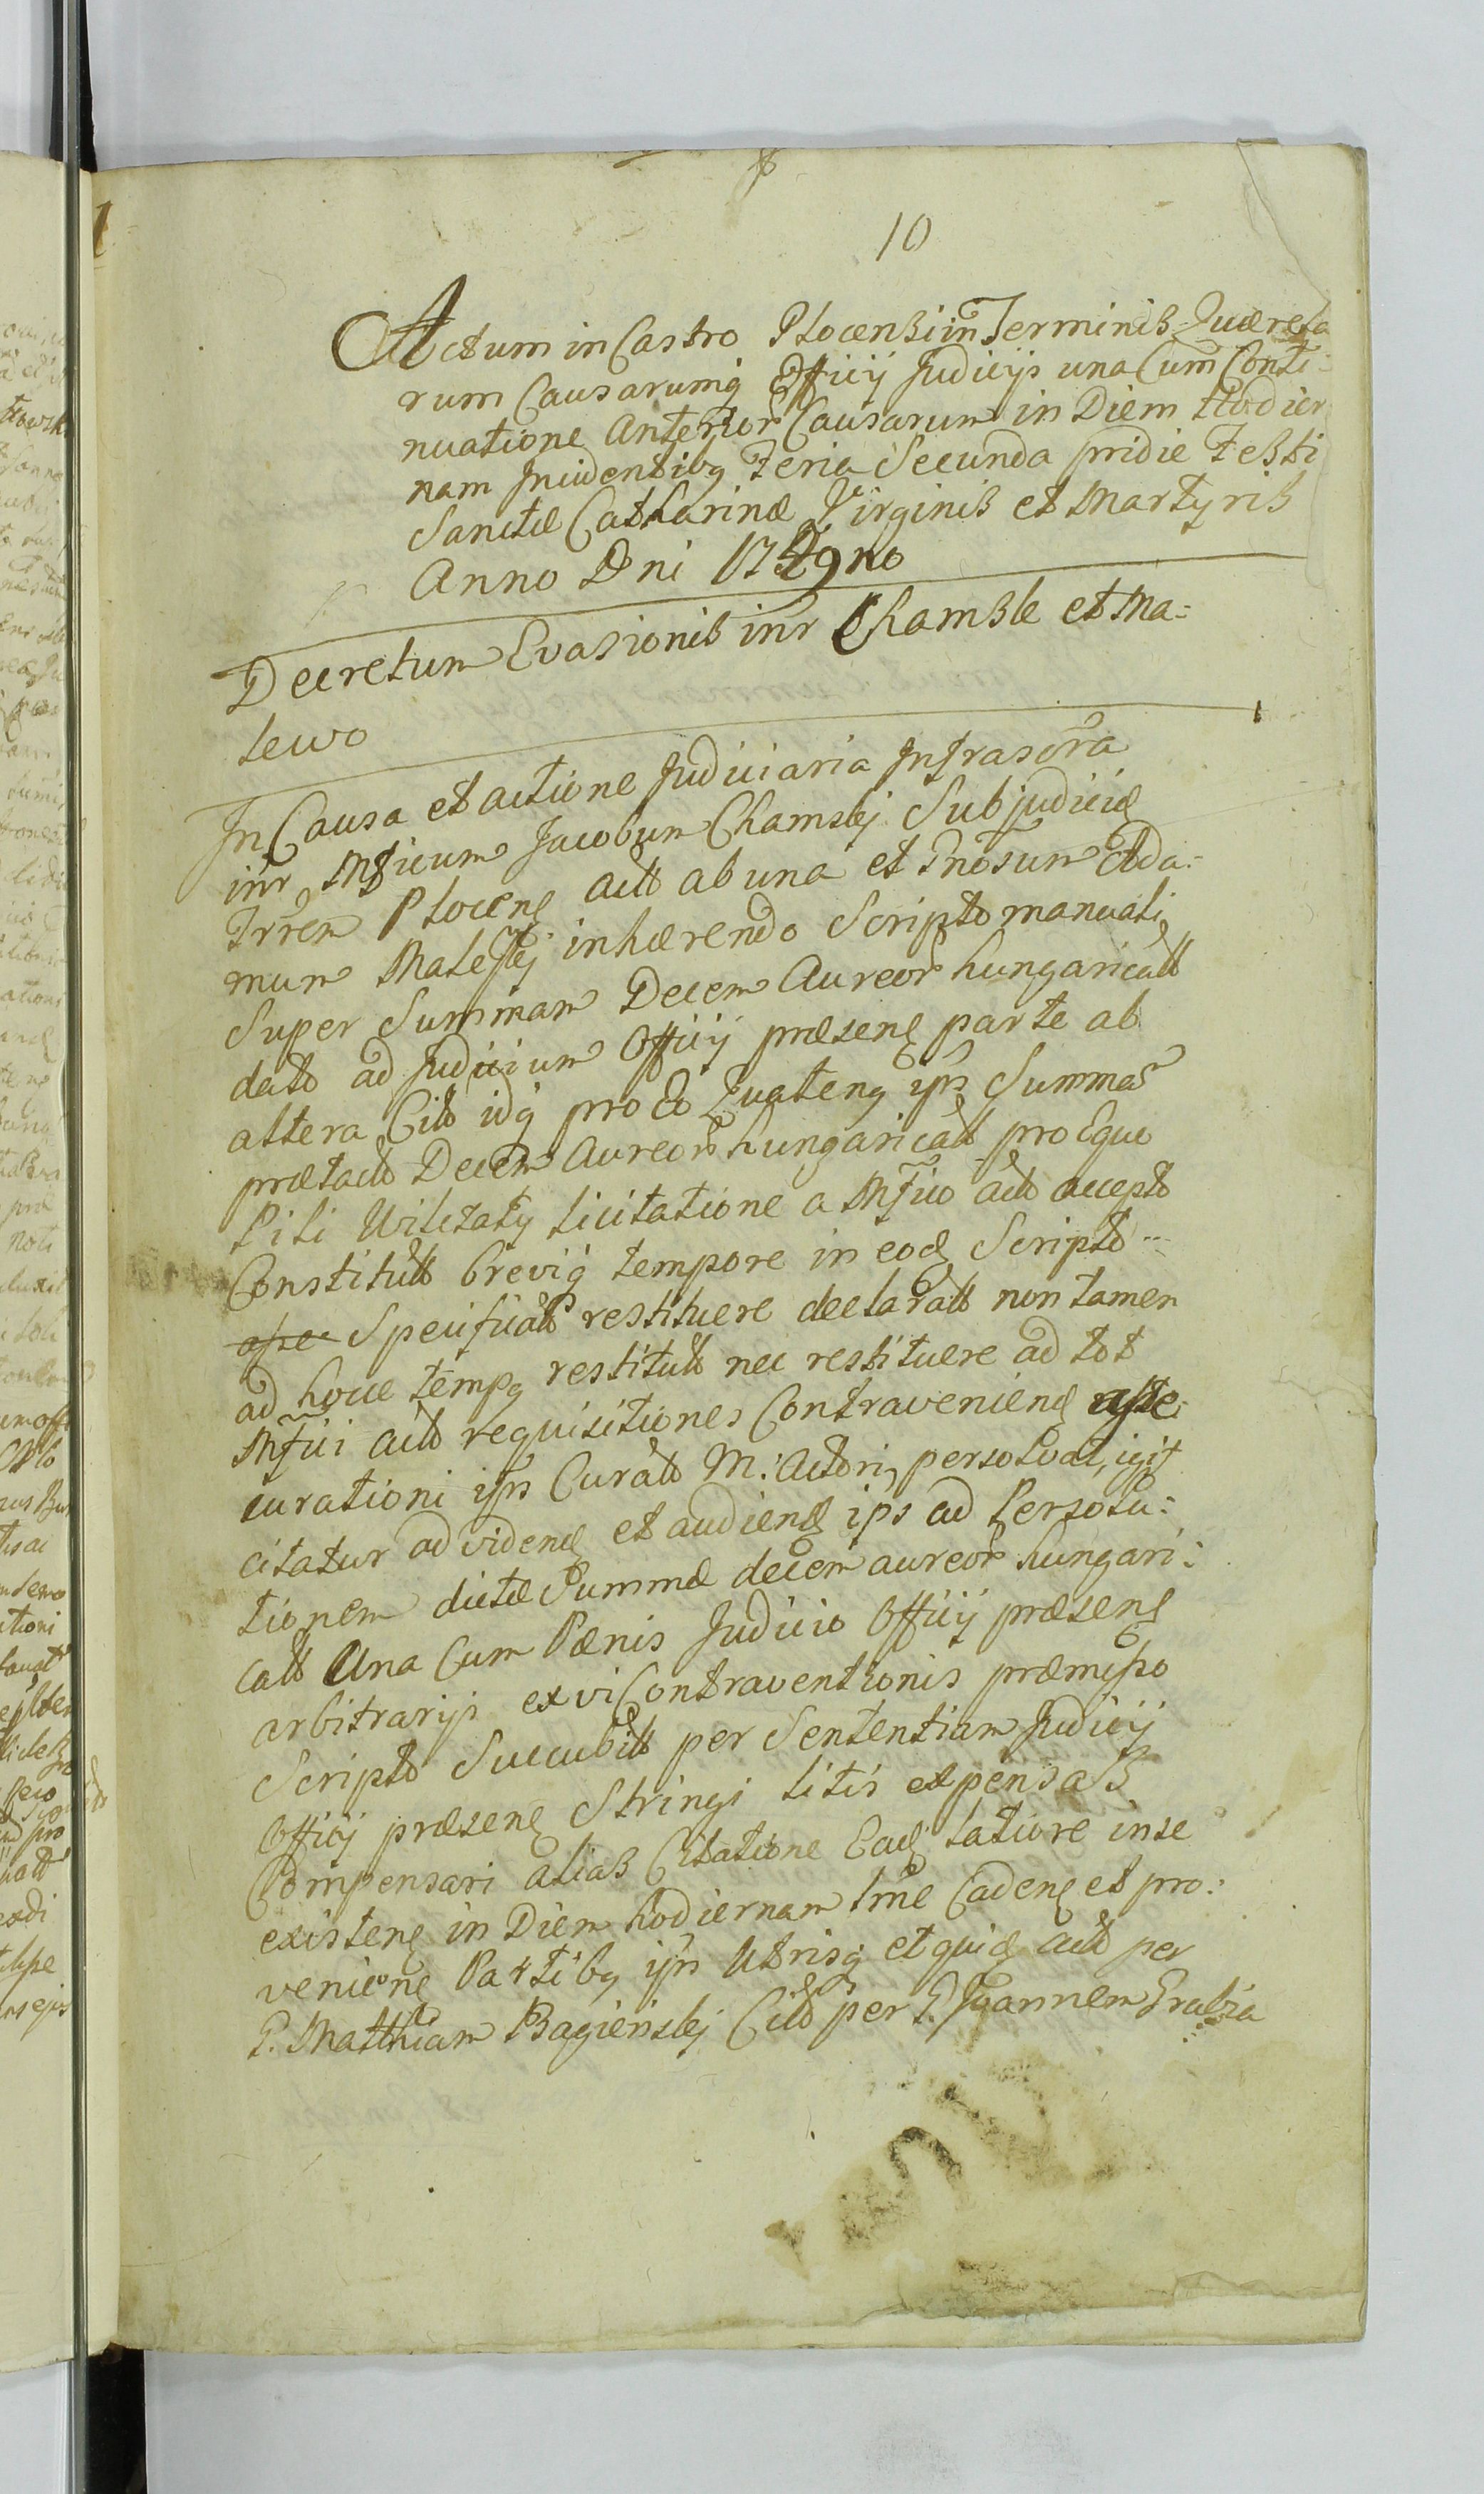 10
Actum in Castro Plocensi in Terminis Quærela
rum Causarumq Officij Judicijs una Cum Conti=
nuatione Anterior Causarum in Diem Hodier
nam Incidentibq Feria Secunda pridie Festi
Sanctæ Catharinæ Virginis et Martyris
Anno Dni 1729no
Decretum Evasionis inr Chamskę et Ma=
lewo
In Causa et actione Judiciaria Infrascra
inr Mficum Jacobum Chamskj Subjudicę
Trrem Plocenę actt ab una et Gnosum Ada=
mum Maleskj inhærendo Scripto manuali
Super Summam Decem Aureor hungaricatt
datt ad Judicium Officij præsenę parte ab
altera Citt idq pro Eo Quatenq ipn Summas
prætactt Decem Aureor hungaricatt pro Equo
Pili Wilczaty licitatione a Mfico actt accepto
Constitutt breviq tempore in eodę Scripto
Specificatt restituere declaratt non tamen
ad hocce tempq restitutt nec restituere ad tot
Mfici actt requisitiones Contravenienę asse=
curationi ipn Curatt M: Actori, persolvat, igit
citatur ad videnę et audienę ips ad Persolu=
tionem dictæ Summæ decem aureor hungari=
catt Una Cum Pænis Judicio Officij præsenę
arbitrarijs ex vi Contraventionis præmisso
Scripto Succubitt per Sententiam Judicij
Officij præsenę Stringi litis expensas
Compensari alias Citatione Eadę latiore in se
existenę in Diem hodiernam tme Cadenę et pro=
venienę Partibq ipn Utrisq et quidę actt per
G. Matthiam Bagienskj Citt per G. Joannem Grabia